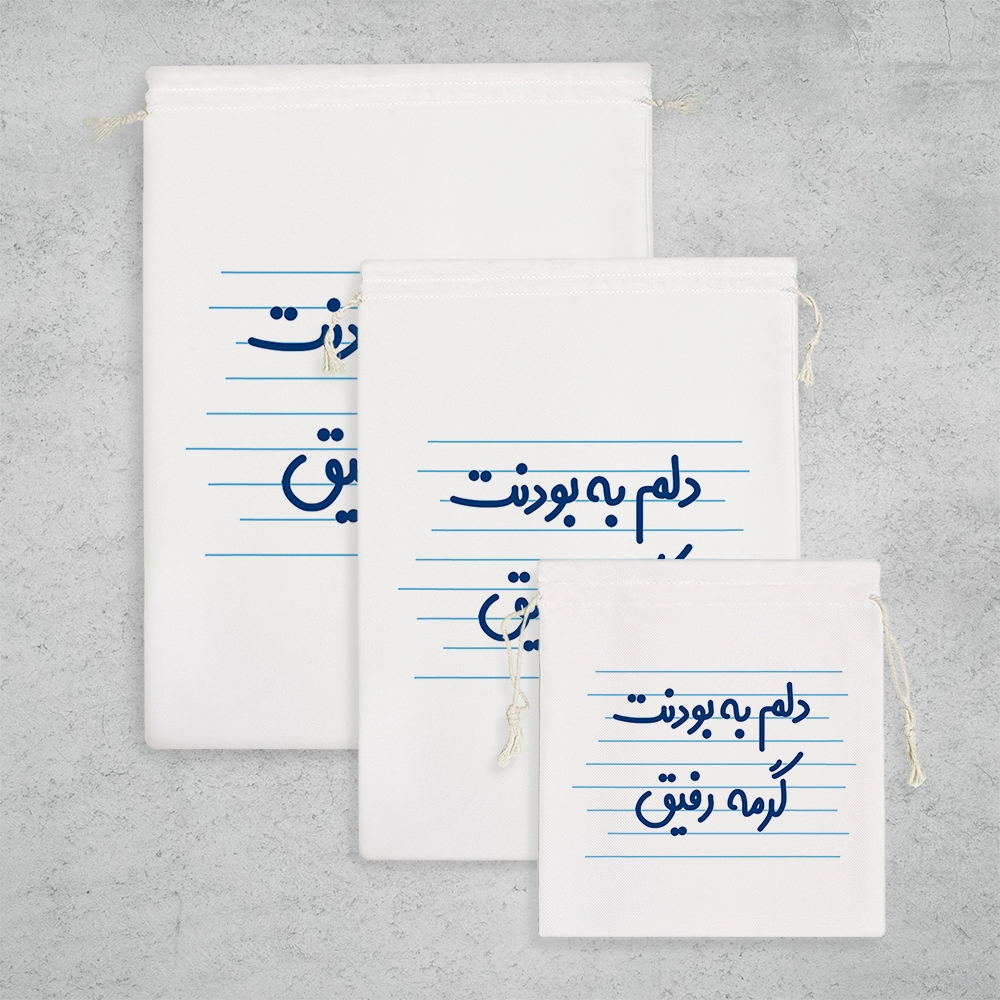 دنت
یق
دلم به بودنت
یق
دلم به بودنت
گرمه رفیق